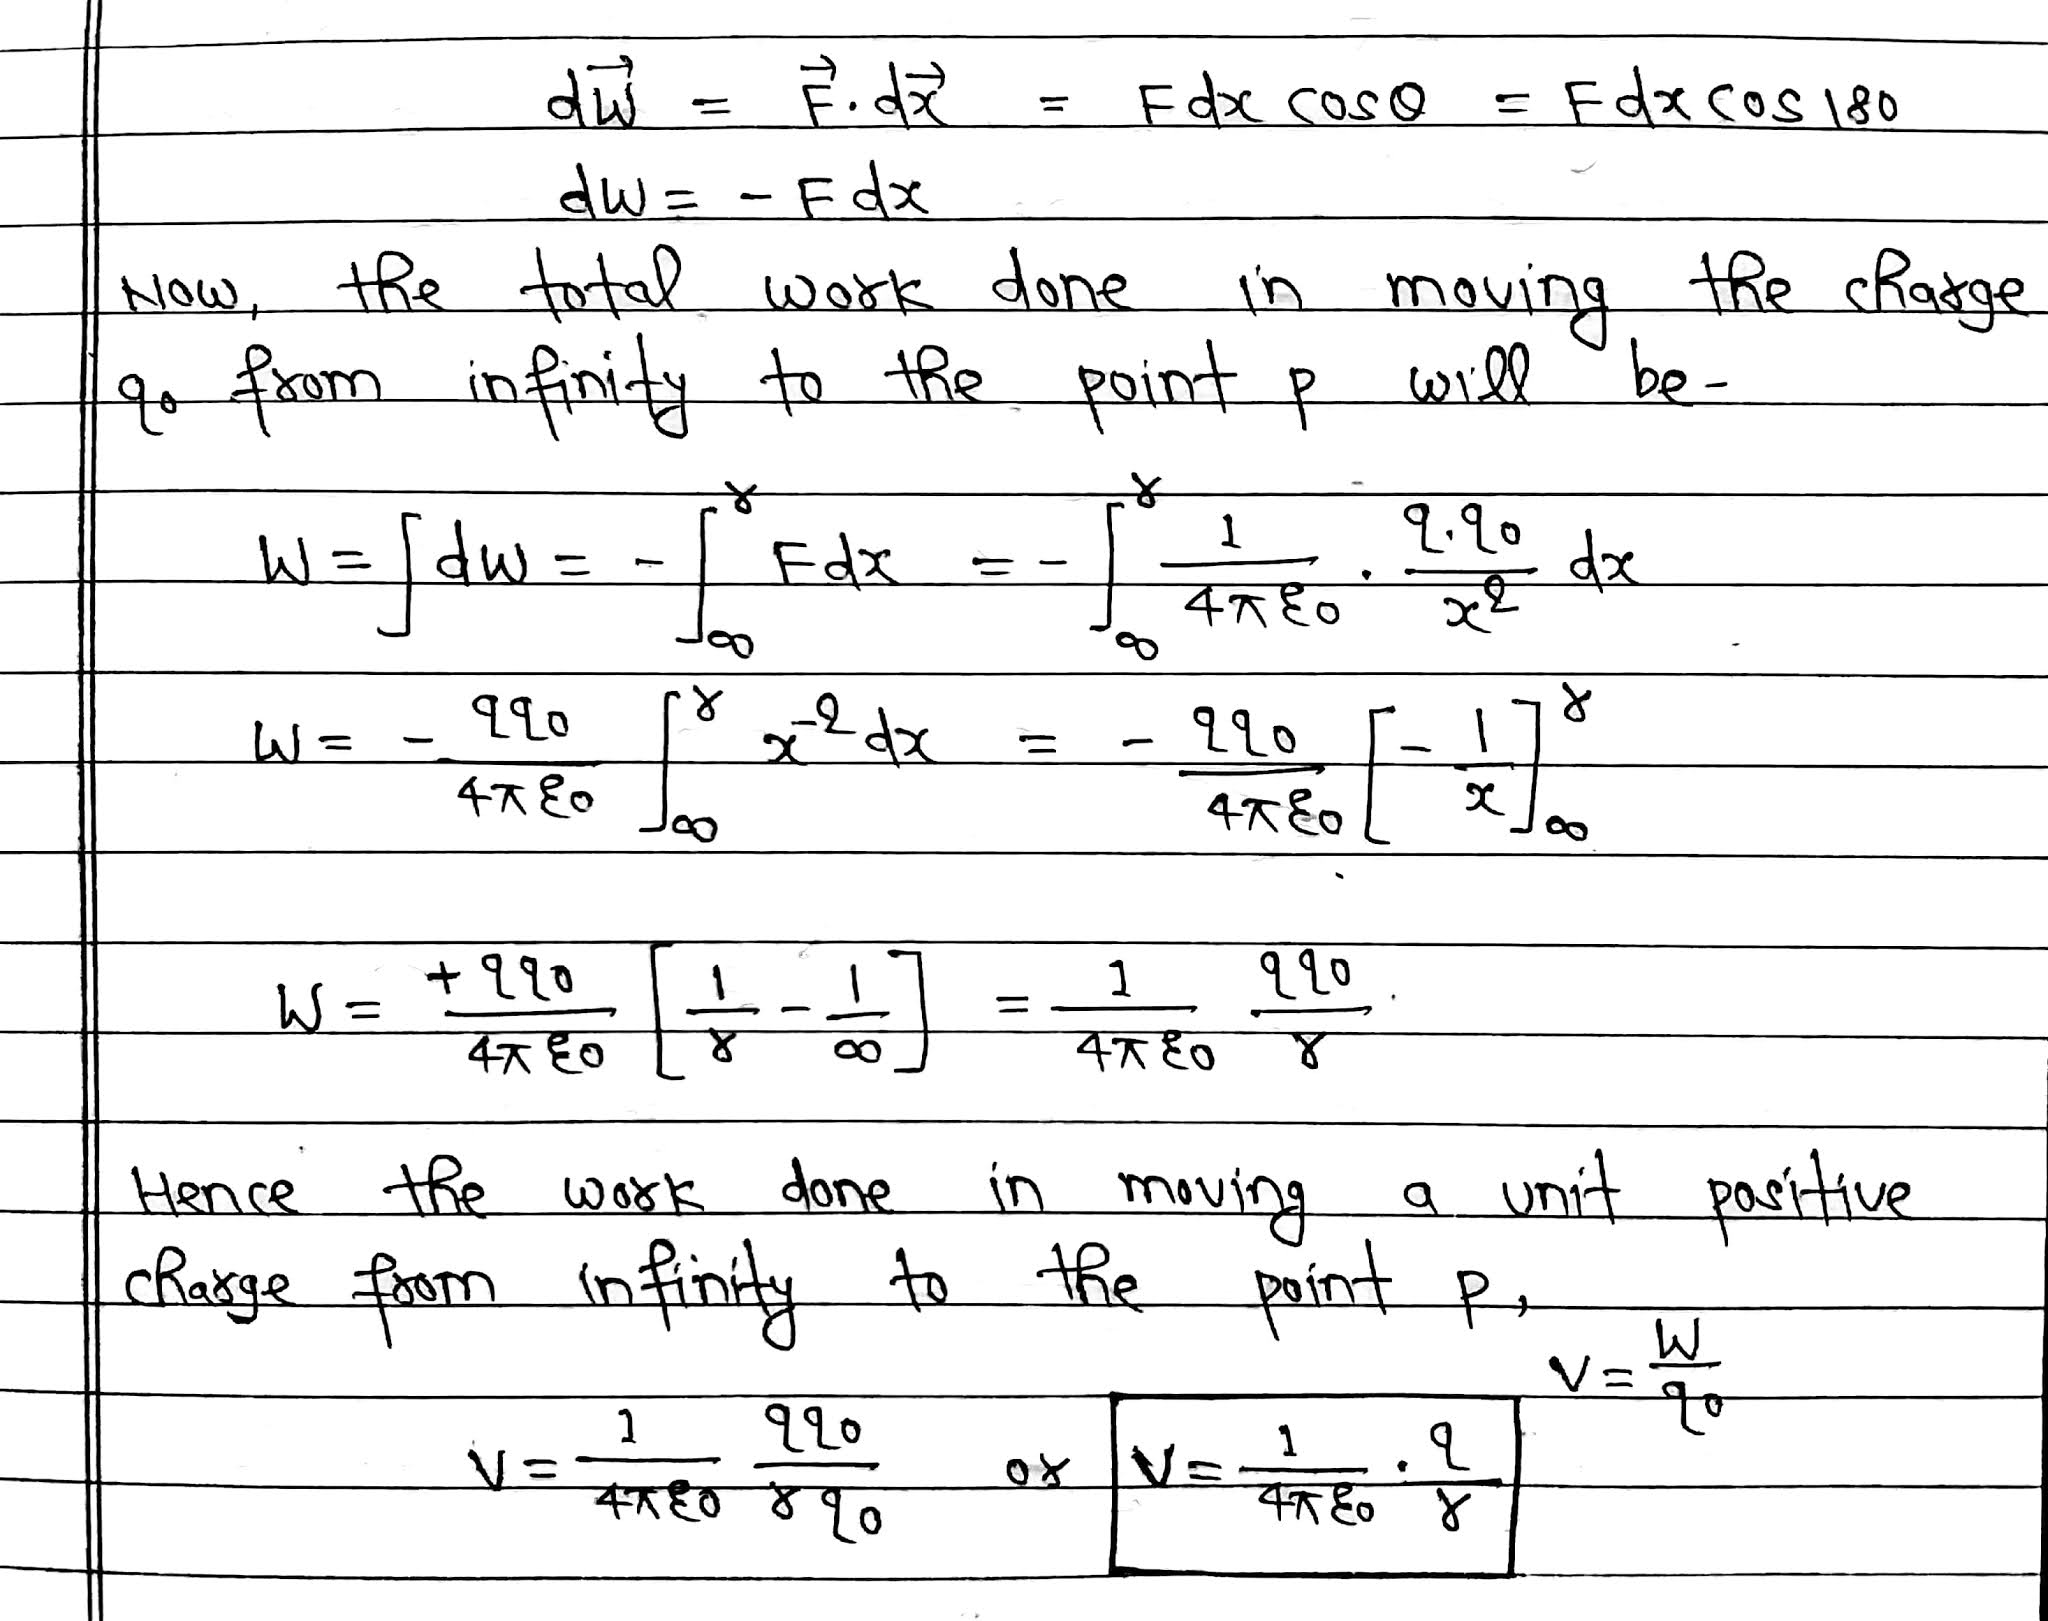 dW⃗ = F⃗.dx⃗ = Fdx cosθ = Fdx cos 180
dW = - Fdx
Now, the total work done in moving the charge
q₀ from infinity to the point p will be-
W = ∫dw = - ∫_∞^r Fdx = - ∫_∞^r 1/4πε₀ . q.q₀/x² dx
W = - qq₀/4πε₀ ∫_∞^r x⁻² dx = - qq₀/4πε₀ [- 1/x]_∞^r
W = + qq₀/4πε₀ [1/r - 1/∞] = 1/4πε₀ qq₀/r
Hence the work done in moving a unit positive
charge from infinity to the point p,
V = W/q₀
V = 1/4πε₀ qq₀/rq₀ or V = 1/4πε₀ . q/r